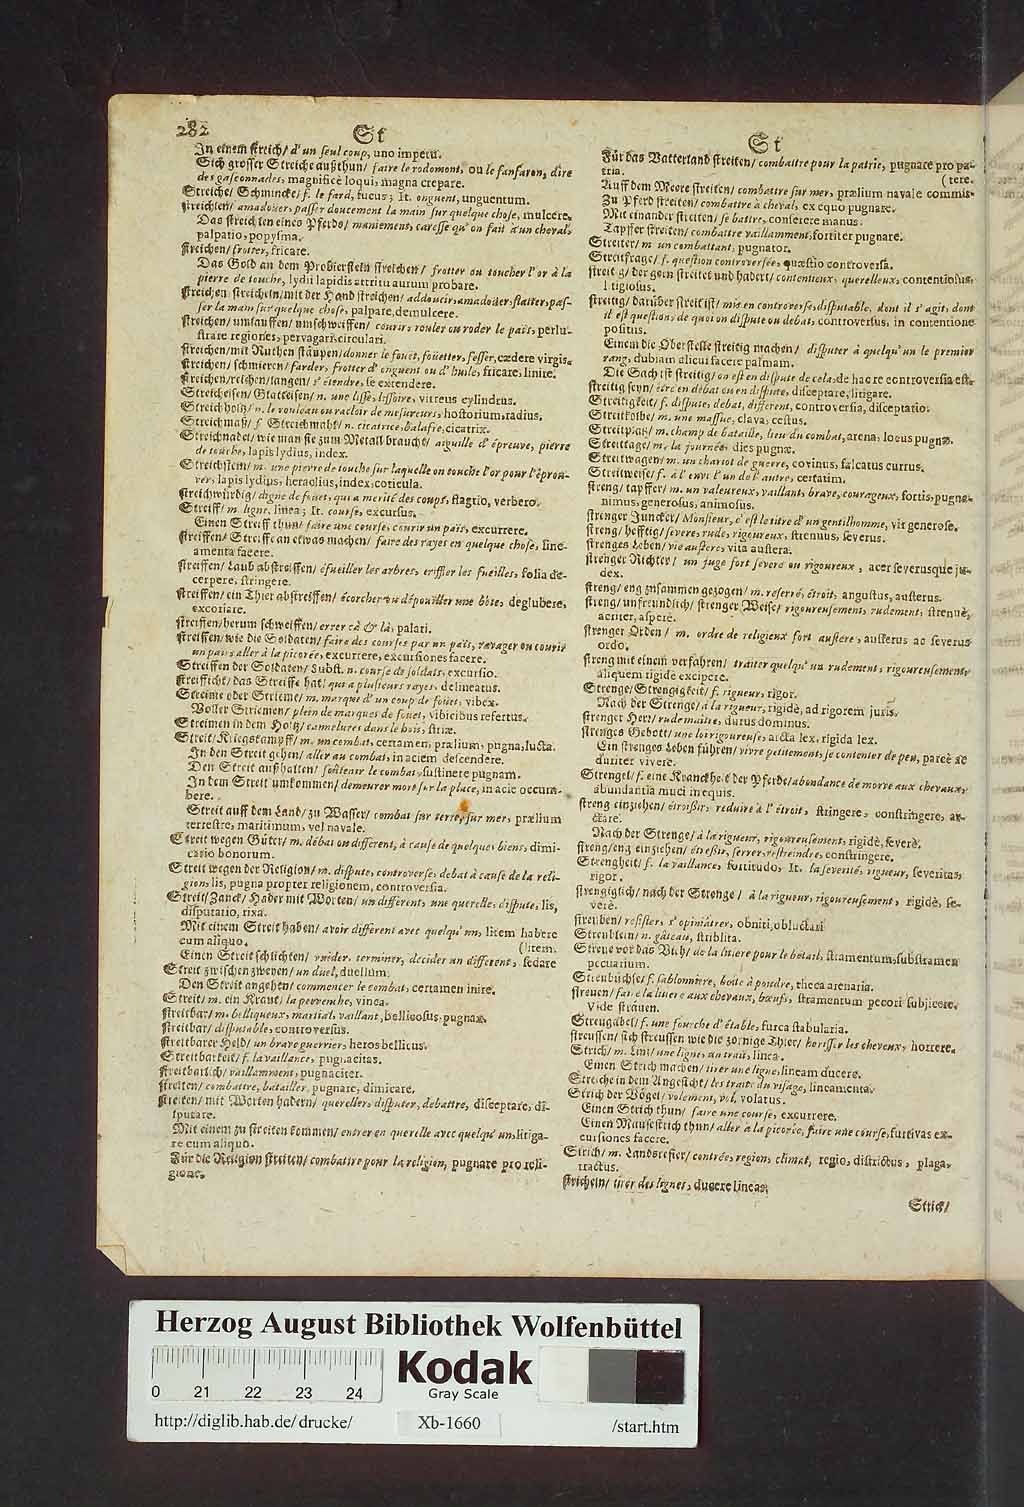 282
St
In einem streich/ d'un seul coup, uno impetu.
Sich grosser Streiche außthun/ faire le rodomont, ou le fanfaron, dire
des gasconnades, magnificè loqui, magna crepare.
Streiche/ Schmincke/ f. le fard, fucus; It. onguent, unguentum.
streichlen/ amadoüer, passer doucement la main sur quelque chose, mulcere.
Das streichlen eines Pferds/ maniement, caresse qu'on fait à un cheval,
palpatio, popysma.
streichen/ frotter, fricare.
Das Gold an dem Probierstein streichen/ frotter ou toucher l'or à la
pierre de touche, lydii lapidis attritu aurum probare.
streichen streicheln/ mit der Hand streichen/ addoucir, amadoüer, flatter, pas-
ser la main sur quelque chose, palpare, demulcere.
streichen/ umlauffen/ umschweiffen/ courir, rouler ou roder le païs, perlu-
strare regiones, pervagari, circulari.
streichen/ mit Ruthen stäupen/ donner le fouet, foüetter, fesser, cædere virgis.
streichen/ schmieren/ farder, frotter d'onguent ou d'huile, fricare, linire.
streichen/ reichen/ langen/ s'étendre, se extendere.
Streicheisen/ Glatteisen/ n. une lisse, lissoire, vitreus cylindrus.
Streichholtz/ n. le rouleau ou racloir de mesureurs, hostorium, radius.
Streichmaß/ f. Streichmaht/ n. cicatrice, balafre, cicatrix.
Streichnadel/ wie man sie zum Metall braucht/ aiguille d'épreuve, pierre
de touche, lapis lydius, index.
Streichstein/ m. une pierre de touche sur laquelle on touche l'or pour l'éprou-
ver, lapis lydius, heraclius, index, coticula.
streichwürdig/ digne de fouet, qui a merité des coups, flagrio, verbero.
Streiff/ m. ligne, linea; It. course, excursus.
Einen Streiff thun/ faire une course, courir un païs, excurrere.
streiffen/ Streiffe an etwas machen/ faire des rayes en quelque chose, line-
amenta facere.
streiffen/ Laub abstreiffen/ éfueiller les arbres, eriffler les fueilles, folia de-
cerpere, stringere.
streiffen/ ein Thier abstreiffen/ écorcher ou dépouiller une bête, deglubere,
excoriare.
streiffen/ herum schweiffen/ errer çà & là, palari.
streiffen/ wie die Soldaten/ faire des courses par un païs, ravager ou courir
un païs, aller à la picorée, excurrere, excursiones facere.
Streiffen der Soldaten/ Subst. n. course de soldats, excursio.
streifficht/ das Streiffe hat/ qui a plusieurs rayes, delineatus.
Streime oder Strieme/ m. marque d'un coup de fouet, vibex.
Voller Striemen/ plein de marques de fouet, vibicibus refertus.
Streimen in dem Holtz/ cannelures dans le bois, striæ.
Streit/ Kriegskampff/ m. un combat, certamen, prælium, pugna, lucta.
In den Streit gehen/ aller au combat, in aciem descendere.
Den Streit außhalten/ soûtenir le combat, sustinere pugnam.
In dem Streit umkommen/ demeurer mort sur la place, in acie occum-
bere.
Streit auff dem Land/ zu Wasser/ combat sur terre, sur mer, prælium
terrestre, maritimum, vel navale.
Streit wegen Güter/ m. débat ou different, à cause de quelques biens, dimi-
catio bonorum.
Streit wegen der Religion/ m. dispute, controverse, debat à cause de la reli-
gion, lis, pugna propter religionem, controversia.
Streit/ Zanck/ Hader mit Worten/ un different, une querelle, dispute, lis,
disputatio, rixa.
Mit einem Streit haben/ avoir different avec quelqu'un, litem habere
cum aliquo.
(litem.
Einen Streit schlichten/ vuider, terminer, decider un different, sedare
Streit zwischen zweyen/ un duel, duellum.
Den Streit angehen/ commencer le combat, certamen inire.
Streit/ m. ein Kraut/ la pervenche, vinca.
streitbar/ m. belliqueux, martial, vaillant, bellicosus, pugnax.
streitbar/ disputable, controversus.
streitbarer Held/ un brave guerrier, heros bellicus.
Streitbarkeit/ f. la vaillance, pugnacitas.
streitbarlich/ vaillamment, pugnaciter.
streiten/ combattre, batailler, pugnare, dimicare.
streiten/ mit Worten hadern/ quereller, disputer, debattre, disceptare, di-
sputare.
Mit einem zu streiten kommen/ entrer en querelle avec quelqu'un, litiga-
re cum aliquo.
Für die Religion streiten/ combattre pour la religion, pugnare pro reli-
gione.
St
Für das Vatterland streiten/ combattre pour la patrie, pugnare pro pa-
tria.
(tere.
Auff dem Meere streiten/ combattre sur mer, prælium navale commit-
Zu Pferd streiten/ combattre à cheval, ex equo pugnare.
Mit einander streiten/ se battre, conserere manus.
Tapffer streiten/ combattre vaillamment, fortiter pugnare.
Streiter/ m. un combattant, pugnator.
Streitfrage/ f. question controversée, quæstio controversa.
streitig/ der gern streitet und hadert/ contentieux, querelleux, contentiosus,
litigiosus.
streitig/ darüber streit ist/ mis en controverse, disputable, dont il s'agit, dont
il est question, de quoi on dispute ou debat, controversus, in contentione
positus.
Einem die Oberstelle streitig machen/ disputer à quelqu'un le premier
rang, dubiam alicui facere palmam.
Die Sach ist streitig/ on est en dispute de cela, de hac re controversia est.
streitig seyn/ être en débat ou en dispute, disceptare, litigare.
Streitigkeit/ f. dispute, debat, different, controversia, disceptatio.
Streitkolbe/ m. une massue, clava, cestus.
Streitplatz/ m. champ de bataille, lieu du combat, arena, locus pugnæ.
Streittage/ m. la journée, dies pugnæ.
Streitwagen/ m. un chariot de guerre, covinus, falcatus currus.
Streitweise/ f. à l'envi l'un de l'autre, certatim.
streng/ tapffer/ m. un valeureux, vaillant, brave, courageux, fortis, pugna-
nimus, generosus, animosus.
strenger Juncker/ Monsieur, c'est le titre d'un gentilhomme, vir generose.
streng/ hefftig/ severe, rude, rigoureux, strenuus, severus.
strenges Leben/ vie austere, vita austera.
strenger Richter/ un juge fort severe ou rigoureux, acer severusque ju-
dex.
streng/ eng zusammen gezogen/ m. reserré, étroit, angustus, austerus.
streng/ unfreundlich/ strenger Weise/ rigoureusement, rudement, strenuè,
acriter, asperè.
strenger Orden/ m. ordre de religieux fort austere, austerus ac severus
ordo.
streng mit einem verfahren/ traiter quelqu'un rudement, rigoureusement,
aliquem rigide excipere.
Strenge/ Strengigkeit/ f. rigueur, rigor.
Nach der Strenge/ à la rigueur, rigidè, ad rigorem juris.
strenger Herr/ rude maître, durus dominus.
strenges Gebott/ une loi rigoureuse, arcta lex, rigida lex.
Ein strenges Leben führen/ vivre petitement, se contenter de peu, parcè ac
duriter vivere.
Strengel/ f. eine Kranckheit der Pferde/ abondance de morve aux chevaux,
abundantia muci in equis.
streng einziehen/ étroißir, reduire à l'étroit, stringere, constringere, ar-
ctare.
Nach der Strenge/ à la rigueur, rigoureusement, rigidè, severè.
streng/ eng einziehen/ étressir, serrer, restreindre, constringere.
Strengheit/ f. la vaillance, fortitudo, It. la severité, rigueur, severitas,
rigor.
strengiglich/ nach der Strenge/ à la rigueur, rigoureusement, rigidè, se-
verè.
streuben/ resister, s'opiniâtrer, obniti, obluctari
Streublein/ n. gâteau, striblita.
Streue vor das Vich/ de la litiere pour le bétail, stramentum, substramen
pecuarium.
Streubüchse/ f. sablonniere, boite à poudre, theca arenaria.
streuen/ faire la litiere aux chevaux, bœufs, stramentum pecori subjicere.
Vide sträuen.
Streugabel/ f. une fourche d'étable, furca stabularia.
streussen/ sich streussen wie die zornige Thier/ herisser les cheveux, horrere.
Strich/ m. Lini/ une ligne, un trait, linea.
Einen Strich machen/ tirer une ligne, lineam ducere.
Striche in dem Angesicht/ les traits du visage, lineamenta.
Strich der Vögel/ volement, vol, volatus.
Einen Strich thun/ faire une course, excurrere.
Einen Mausestrich thun/ aller à la picorée, faire une course, furtivas ex-
cursiones facere.
Strich/ m. Landsrefier/ contrée, region, climat, regio, districtus, plaga,
tractus.
stricheln/ tirer des lignes, ducere lineas.
Strick/
Herzog August Bibliothek Wolfenbüttel
Kodak
Gray Scale
0 21 22 23 24
http://diglib.hab.de/drucke/ Xb-1660 /start.htm